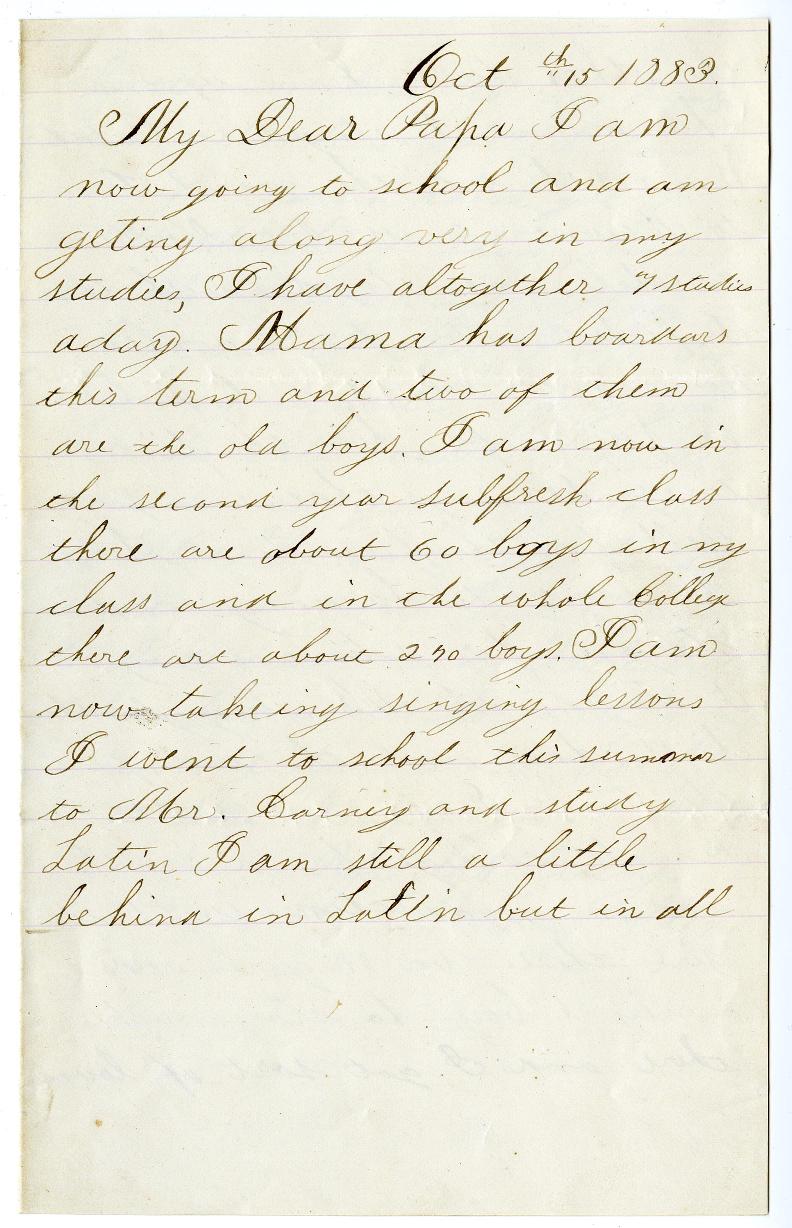 Oct th 15 1883.
My Dear Papa I am
now going to school and am
geting along very in my
studies, I have altogether 7 studies
aday. Mama has boardars
this term and two of them
are the old boys. I am now in
the second year subfresh class
there are about 60 boys in my
class and in the whole College
there are about 270 boys. I am
now takeing singing lessons
I went to school this summer
to Mr. Carney and study
Latin I am still a little
behind in Latin but in all